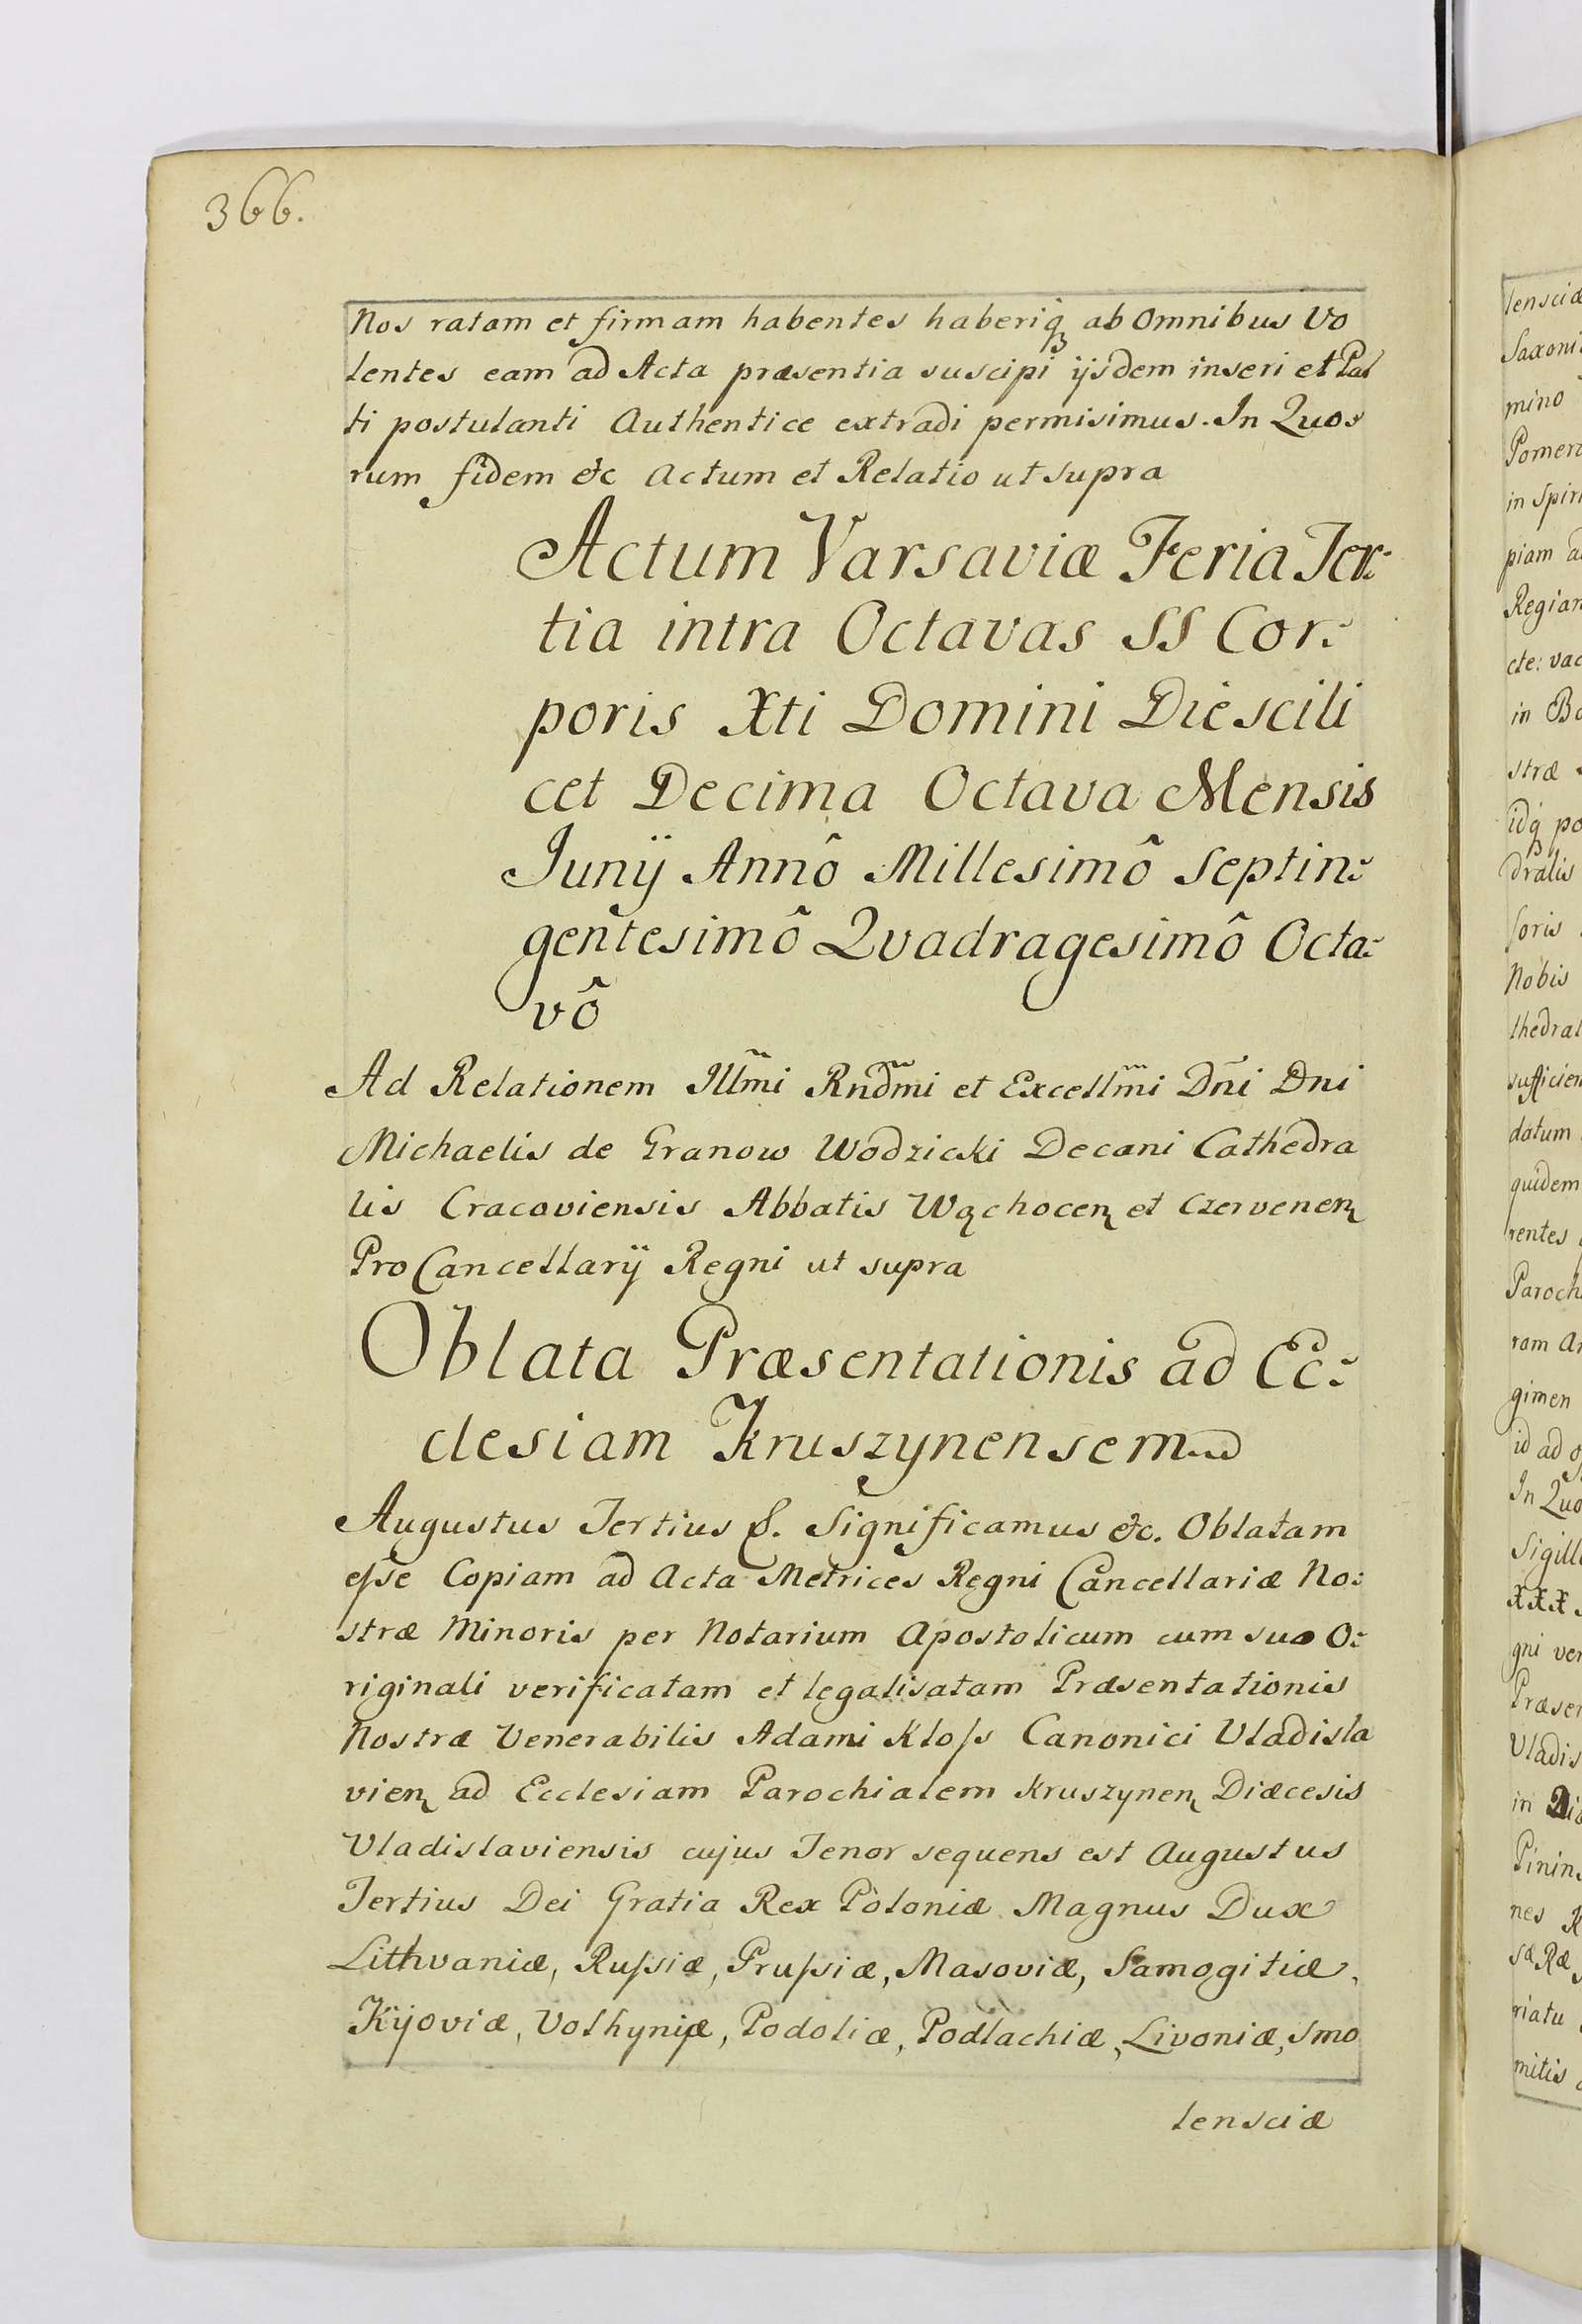 366.
Nos ratam et firmam habentes haberiq₃ ab Omnibus Vo
lentes eam ad Acta præsentia suscipi ijsdem inseri et Par
ti postulanti Authentice extradi permisimus. In Quo:
rum fidem &c Actum et Relatio ut supra
Actum Varsaviæ Feria Ter:
tia intra Octavas SS Cor:
poris Xti Domini Die scili
cet Decima Octava Mensis
Junÿ Annô Millesimô Septin:
gentesimô Qvadragesimô Octa:
vô
Ad Relationem Illm̃i Rndm̃i et Excellm̃i Dñi Dni
Michaelis de Granow Wodzicki Decani Cathedra
lis Cracoviensis Abbatis Wąchocen̨ et Czervenen̨
Pro Cancellarÿ Regni ut supra
Oblata Præsentationis ad Ec:
clesiam Kruszynensem
Augustus Tertius &. Significamus &c. Oblatam
eſse Copiam ad Acta Metrices Regni Cancellariæ No:
stræ Minoris per Notarium Apostolicum cum suo O:
riginali verificatam et legalisatam Præsentationis
Nostræ Venerabilis Adami Kloſs Canonici Vladisla
vien̨ ad Ecclesiam Parochialem Kruszynen̨ Diæcesis
Vladislaviensis cujus Tenor sequens est Augustus
Tertius Dei Gratia Rex Poloniæ Magnus Dux
Lithvaniæ, Ruſsiæ, Pruſsiæ, Masoviæ, Samogitiæ,
Kijoviæ, Volhyniæ, Podoliæ, Podlachiæ, Livoniæ, Smo
lensciæ
lensciæ
Saxoni
mino
Pomer
in Spir
piam a
Regian
cte: vac
in B
stræ
idq₃ po
dralis
soris
Nobis
thedral
sufficien
datum
quidem
rentes
Paroch
ram A
gimen
id ad
In Quo
Sigill
XXX
gni ver
Præsen
Vladis
in Di
Pinin
nes K
sæ Ræ
riatu
mitis